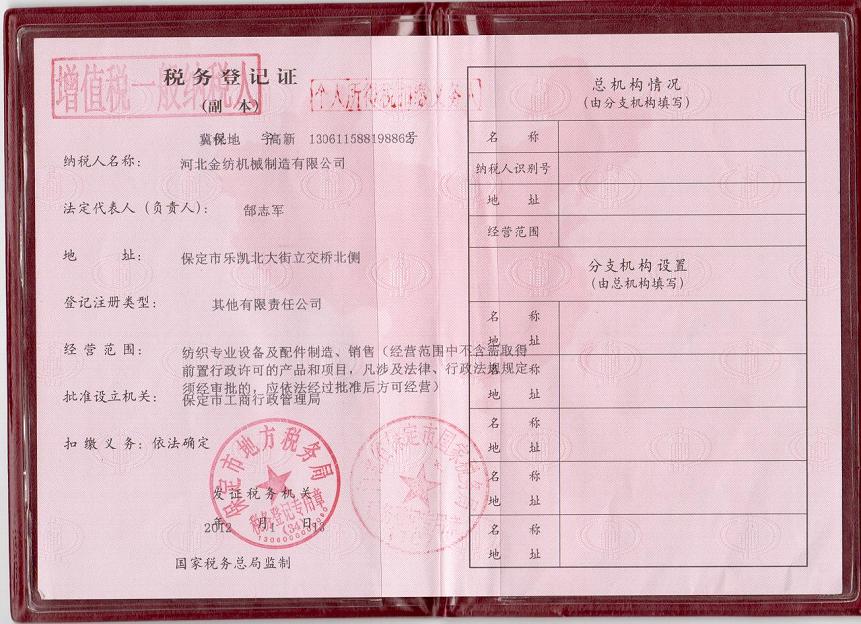 增值税一般纳税人
税务登记证
(副 本)
个人所得税扣缴义务人
冀保地税 字高新 130611588198862号
纳税人名称： 河北金纺机械制造有限公司
法定代表人（负责人）： 郜志军
地 址： 保定市乐凯北大街立交桥北侧
登记注册类型： 其他有限责任公司
经营范围： 纺织专业设备及配件制造、销售（经营范围中不含需取得
前置行政许可的产品和项目，凡涉及法律、行政法规规定
须经审批的，应依法经过批准后方可经营）
批准设立机关： 保定市工商行政管理局
扣缴义务：依法确定
保定市地方税务局
税务登记专用章
(34)
发证税务机关
2012年 月 日
国家税务总局监制
总机构情况
(由分支机构填写)
名 称
纳税人识别号
地 址
经营范围
分支机构设置
(由总机构填写)
名 称
地 址
名 称
地 址
名 称
地 址
名 称
地 址
名 称
地 址